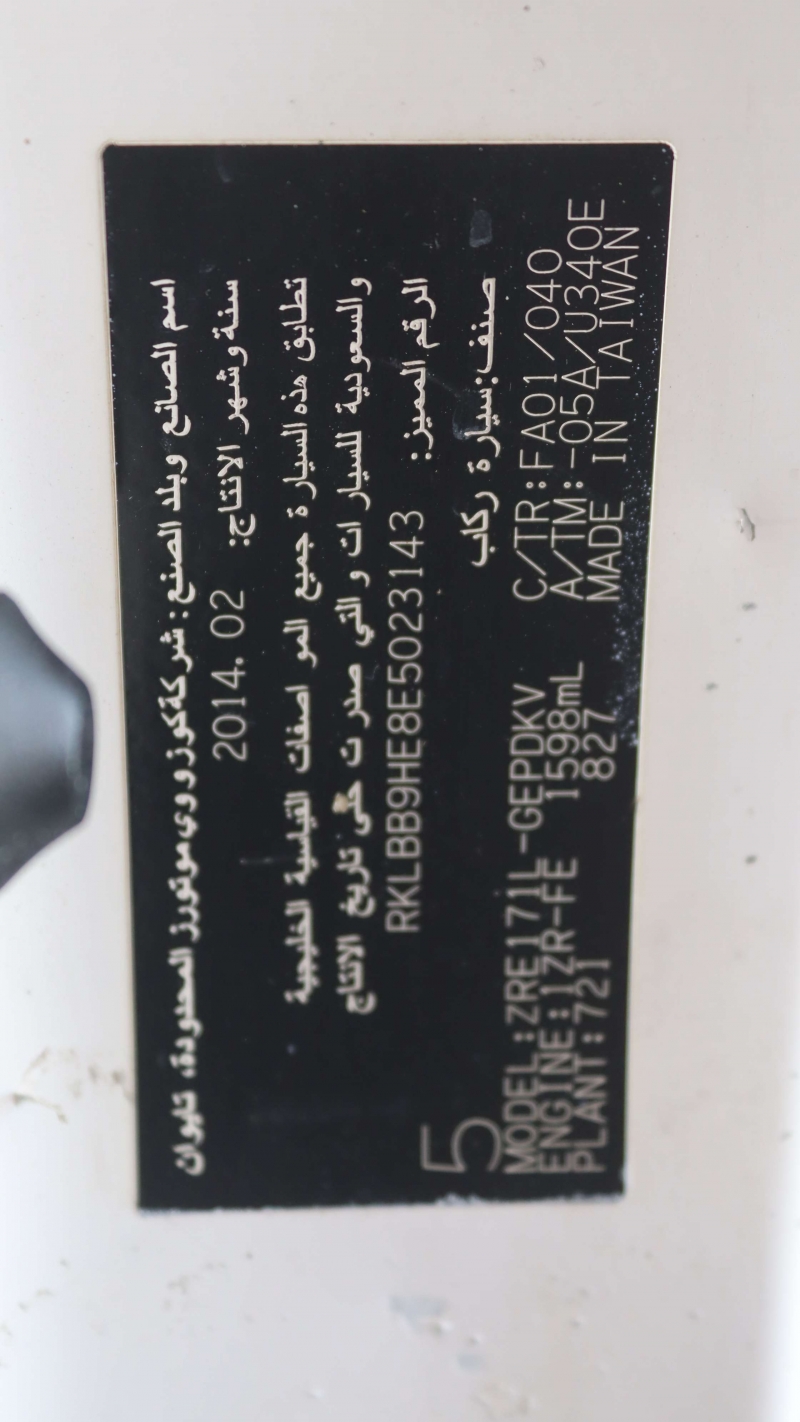 اسم الصانع وبلد الصنع: شركة كوزووي موتورز المحدودة، تايوان
سنة وشهر الانتاج: 2014. 02
تطابق هذه السيارة جميع المواصفات القياسية الخليجية
والسعودية للسيارات والتي صدرت حتى تاريخ الانتاج
الرقم المميز: RKLBB9HE8E5023143
صنف:سيارة ركاب
5
MODEL:ZRE171L-GEPDKV C/TR:FA01/040
ENGINE:1ZR-FE 1598mL A/TM:-05A/U340E
PLANT:721 827 MADE IN TAIWAN